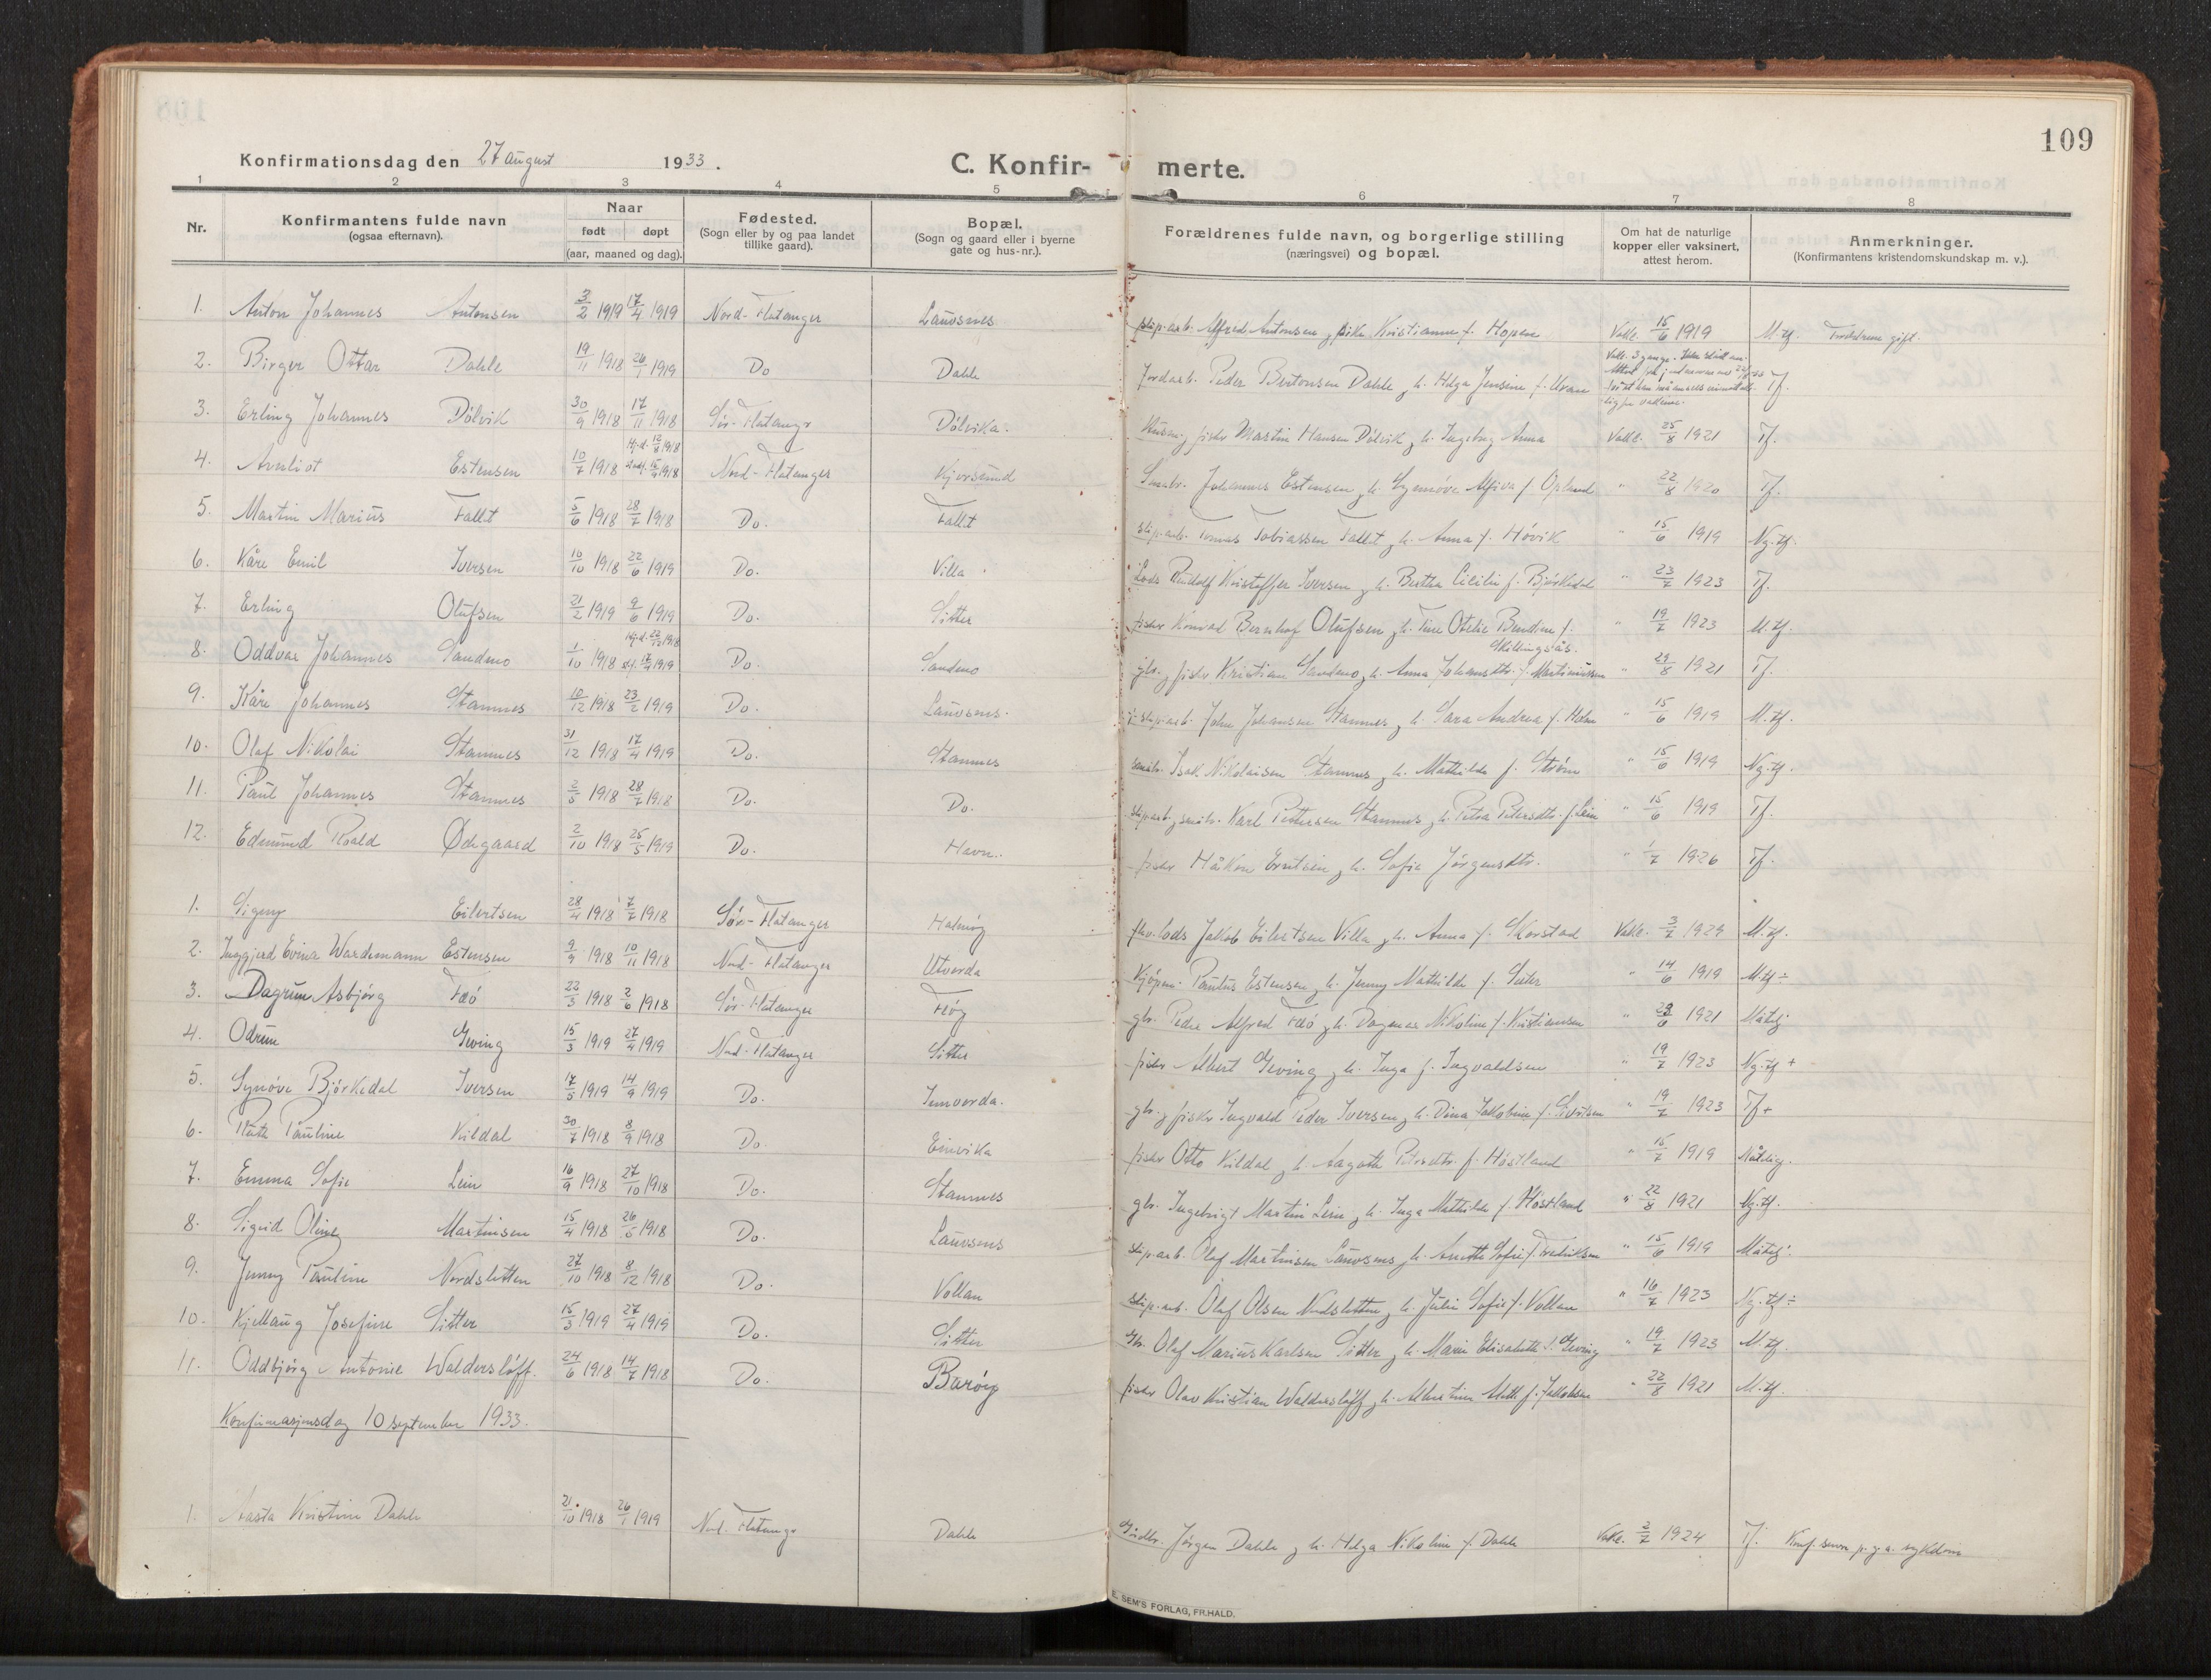 109
Konfirmationsdag den 27 august 1933. C. Konfirmerte.
1 2 3 4 5 6 7 8
Nr. Konfirmantens fulde navn (ogsaa efternavn). Naar født døpt (aar, maaned og dag). Fødested. (Sogn eller by og paa landet tillike gaard). Bopæl. (Sogn og gaard eller i byerne gate og hus-nr.). Forældrenes fulde navn, og borgerlige stilling (næringsvei) og bopæl. Om hat de naturlige kopper eller vaksinert, attest herom. Anmerkninger. (Konfirmantens kristendomskundskap m. v.).
1. Anton Johannes Antonsen 3/2 1919 17/4 1919 Nord-Flatanger Lauvsnes slip.arb. Alfred Antonsen g. Kristianne f. Hopen Vakc. 15/6 1919 M.tf. Foreldrene gift.
2. Birger Ottar Dahle 19/11 1918 26/1 1919 Do Dahle Jordarb. Peder Bertonsen Dahle g. h. Helga Jensine f. Vakc. 3 gange. Tf.
3. Erling Johannes Dølvik 30/9 1918 17/11 1918 Sør-Flatangr Dølvika. Husm. g. fisker Martin Hansen Dølvik g. h. Ingeborg Anna Vakc. 25/8 1921 Tf.
4. Arnliot Estensen 10/7 1918 Hj.d. 12/6 1918 15/9 1918 Nord-Flatanger Kjørsund Smabr. Johannes Estensen g. h. f. Opland " 22/8 1920 Tf.
5. Martin Marius Fallet 5/6 1918 28/7 1918 Do. Fallet slip.arb. Tomas Tobiassen Fallet g. h. Anna f. Høvik " 15/6 1919 Ng.tf.
6. Kåre Emil Iversen 10/10 1918 22/6 1919 Do. Villa Lods Rudolf Kristoffer Iversen g. h. Bertha Cicilie f. Bjørkedal " 23/7 1923 Tf.
7. Erling Olufsen 21/2 1919 9/6 1919 Do. Sitter fisker Konrad Bernhof Olufsen g. h. Tine Otelie Bendine f. Skillingsås. " 19/7 1923 M.tf.
8. Oddvar Johannes Sandmo 1/10 1918 Hj.d. 22/12 1918 st.f. 17/4 1919 Do. Sandmo gbr. g. fisker Kristian Sandmo g. h. Anna Johansdtr. f. Martinussen " 29/8 1921 Tf.
9. Kåre Johannes Stamnes 10/12 1918 23/2 1919 Do. Lauvsnes. slip.arb. John Johansen Stamnes g. h. Sara Andrea f. Holm " 15/6 1919 M.tf.
10. Olaf Nikolai Stamnes 31/12 1918 17/4 1919 Do. Stamnes småbr. Isak Nikolaisen Stamnes g. h. Mathilde f. Strøm " 15/6 1919 Ng.tf.
11. Paul Johannes Stamnes 2/5 1918 28/7 1918 Do. Do. slip.arb. g. småbr. Karl Pettersen Stamnes g. h. Petra Petersdtr. f. Lein " 15/6 1919 Tf.
12. Edmund Roald Ødegaard 2/10 1918 25/5 1919 Do. Havn. fisker Håkon Erntsen g. h. Sofie Jørgensdtr. " 1/7 1926 Tf.
1. Signy Eilertsen 28/4 1918 7/7 1918 Sør-Flatanger Halmøy fhv. lods Jakob Eilertsen Villa g. h. Anna f. Skorstad Vakc. 3/7 1929 M.tf.
2. Inggjerd Evina Wardemann Estensen 9/9 1918 10/11 1918 Nord-Flatanger Utvorda Kjøpm. Paulus Estensen g. h. Jenny Mathilde f. Sitter " 14/6 1919 M.tf÷
3. Dagrun Asbjørg Fløø 22/3 1918 2/6 1918 Sør-Flatanger Fløy gbr. Peder Alfred Fløø g. h. Dagmar Nikoline f. Kristiansen " 23/6 1921 Måtelig.
4. Odrun Gving 15/3 1919 27/4 1919 Nord-Flatanger Sitter fisker Albert Gving g. h. Inga f. Ingvaldsen " 19/7 1923 Ng.tf +
5. Synøve Bjørkedal Iversen 17/5 1919 14/9 1919 Do. Innvorda. gbr. g. fisker Ingvald Peder Iversen g. h. Dina Jakobine f. Sivertsen " 19/7 1923 Tf+
6. Ruth Pauline Kildal 30/7 1918 8/9 1918 Do. Einvika fisker Otto Kildal g. h. Aagoth Petersdtr. f. Høstland " 15/7 1919 Måtelig.
7. Emma Sofie Lein 16/9 1918 27/10 1918 Do. Stamnes gbr. Ingebrigt Martin Lein g. h. Inga Mathilde f. Høstland " 22/8 1921 Ng.tf.
8. Sigrid Oline Martinsen 15/4 1918 26/5 1918 Do. Lauvsnes slip.arb. Olaf Martinsen Lauvsnes g. h. Anette Sofie f. Fredriksen " 15/6 1919 Måtelig.
9. Jenny Pauline Nordsletten 27/10 1918 8/12 1918 Do. Vollan slip.arb. Olaf Olsen Nordsletten g. h. Julie Sofie f. Vollan " 16/7 1923 Ng.tf÷
10. Kjellaug Josefine Sitter 15/3 1919 27/4 1919 Do. Sitter gbr. Olaf Marius Karlsen Sitter g. h. Marie Elisabeth f. Gving " 19/7 1923 M.tf.
11. Oddbjørg Antonie Walderslöff. 24/6 1918 14/7 1918 Do. Barøy fisker Olav Kristian Walderslöff g. h. Albertine Mette f. Jakobsen " 22/8 1921 M.tf.
Konfirmasjonsdag 10 september 1933.
1. Aasta Kristine Dahle 21/10 1918 26/1 1919 Nord-Flatangr Dahle Gårdbr. Jørgen Dahle g. h. Helga Nikoline f. Dahle Vakc. 2/7 1924 Tf. Konf. senere p.g.a. sykdom
E. SEM'S FORLAG, FR.HALD.